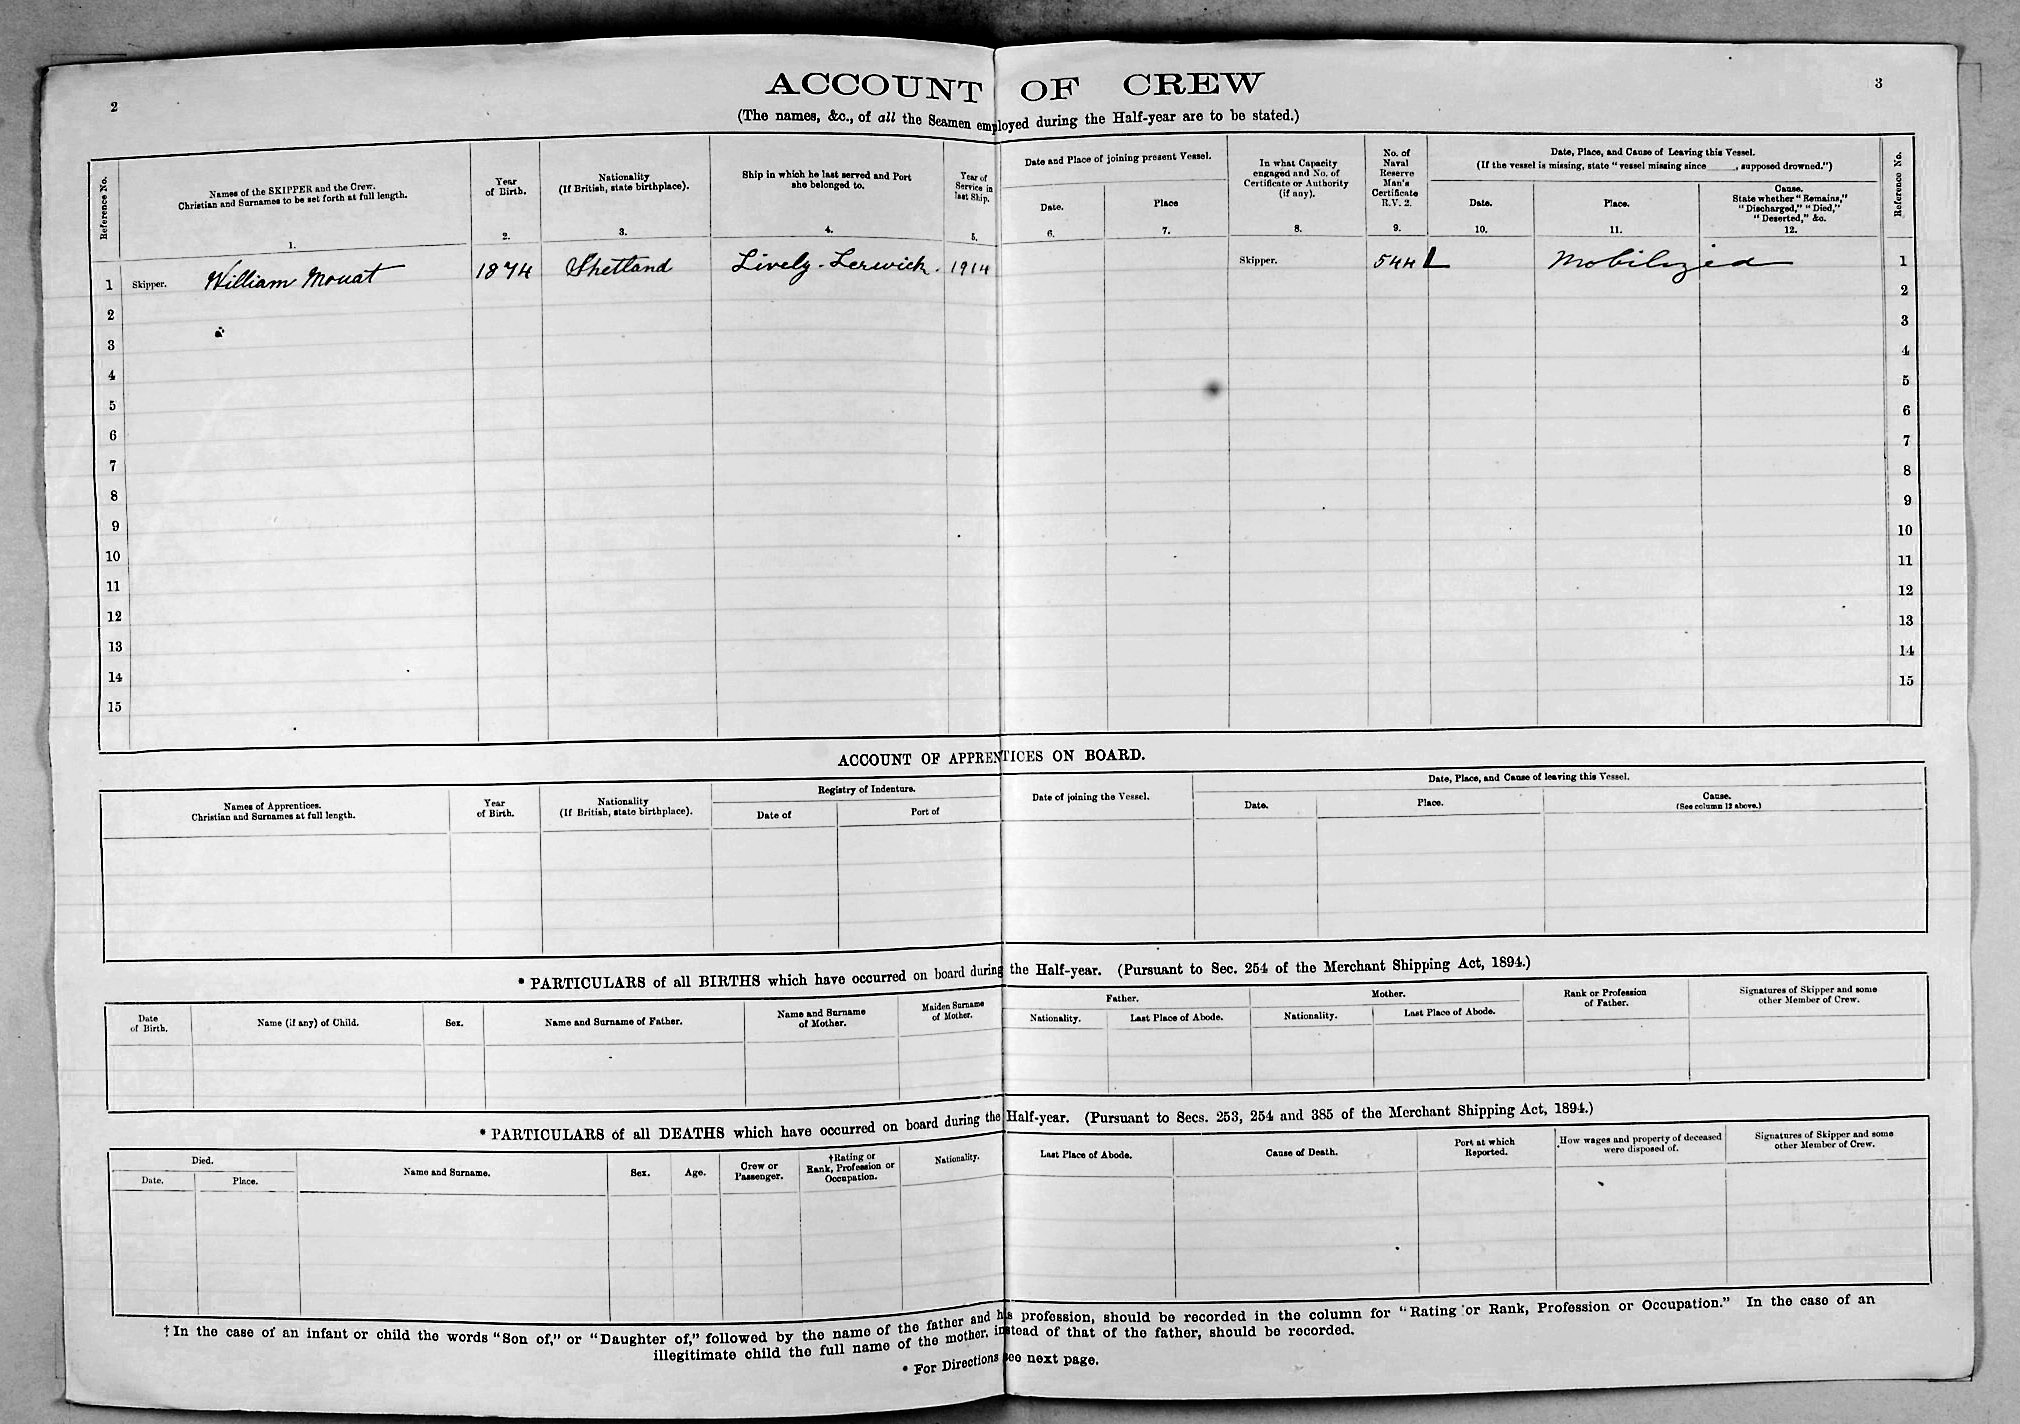 2
3
ACCOUNT OF CREW
(The names, &c., of all the Seamen employed during the Half-year are to be stated.)
Reference No.
Names of the SKIPPER and the Crew.
Christian and Surnames to be set forth at full length.
1.
Year
of Birth.
2.
Nationality
(If British, state birthplace).
3.
Ship in which he last served and Port
she belonged to.
4.
Year of
Service in
last Ship.
5.
Date and Place of joining present Vessel.
Date.
6.
Place
7.
In what Capacity
engaged and No. of
Certificate or Authority
(if any).
8.
No. of
Naval
Reserve
Man's
Certificate
R.V. 2.
9.
Date, Place, and Cause of Leaving this Vessel.
(If the vessel is missing, state "vessel missing since_____, supposed drowned.")
Date.
10.
Place.
11.
Cause.
State whether "Remains,"
"Discharged," "Died,"
"Deserted," &c.
12.
Reference No.
1 Skipper. William Mouat 1874 Shetland Lively - Lerwick. 1914 Skipper. 544 L Mobilized 1
2 2
3 3
4 4
5 5
6 6
7 7
8 8
9 9
10 10
11 11
12 12
13 13
14 14
15 15
ACCOUNT OF APPRENTICES ON BOARD.
Names of Apprentices.
Christian and Surnames at full length.
Year
of Birth.
Nationality
(If British, state birthplace).
Registry of Indenture.
Date of
Port of
Date of joining the Vessel.
Date, Place, and Cause of leaving this Vessel.
Date.
Place.
Cause.
(See column 12 above.)
* PARTICULARS of all BIRTHS which have occurred on board during the Half-year. (Pursuant to Sec. 254 of the Merchant Shipping Act, 1894.)
Date
of Birth.
Name (if any) of Child.
Sex.
Name and Surname of Father.
Name and Surname
of Mother.
Maiden Surname
of Mother.
Father.
Nationality.
Last Place of Abode.
Mother.
Nationality.
Last Place of Abode.
Rank or Profession
of Father.
Signatures of Skipper and some
other Member of Crew.
* PARTICULARS of all DEATHS which have occurred on board during the Half-year. (Pursuant to Secs. 253, 254 and 385 of the Merchant Shipping Act, 1894.)
Died.
Date.
Place.
Name and Surname.
Sex.
Age.
Crew or
Passenger.
†Rating or
Rank, Profession or
Occupation.
Nationality.
Last Place of Abode.
Cause of Death.
Port at which
Reported.
How wages and property of deceased
were disposed of.
Signatures of Skipper and some
other Member of Crew.
†In the case of an infant or child the words "Son of," or "Daughter of," followed by the name of the father and his profession, should be recorded in the column for "Rating or Rank, Profession or Occupation." In the case of an
illegitimate child the full name of the mother, instead of that of the father, should be recorded.
* For Directions see next page.